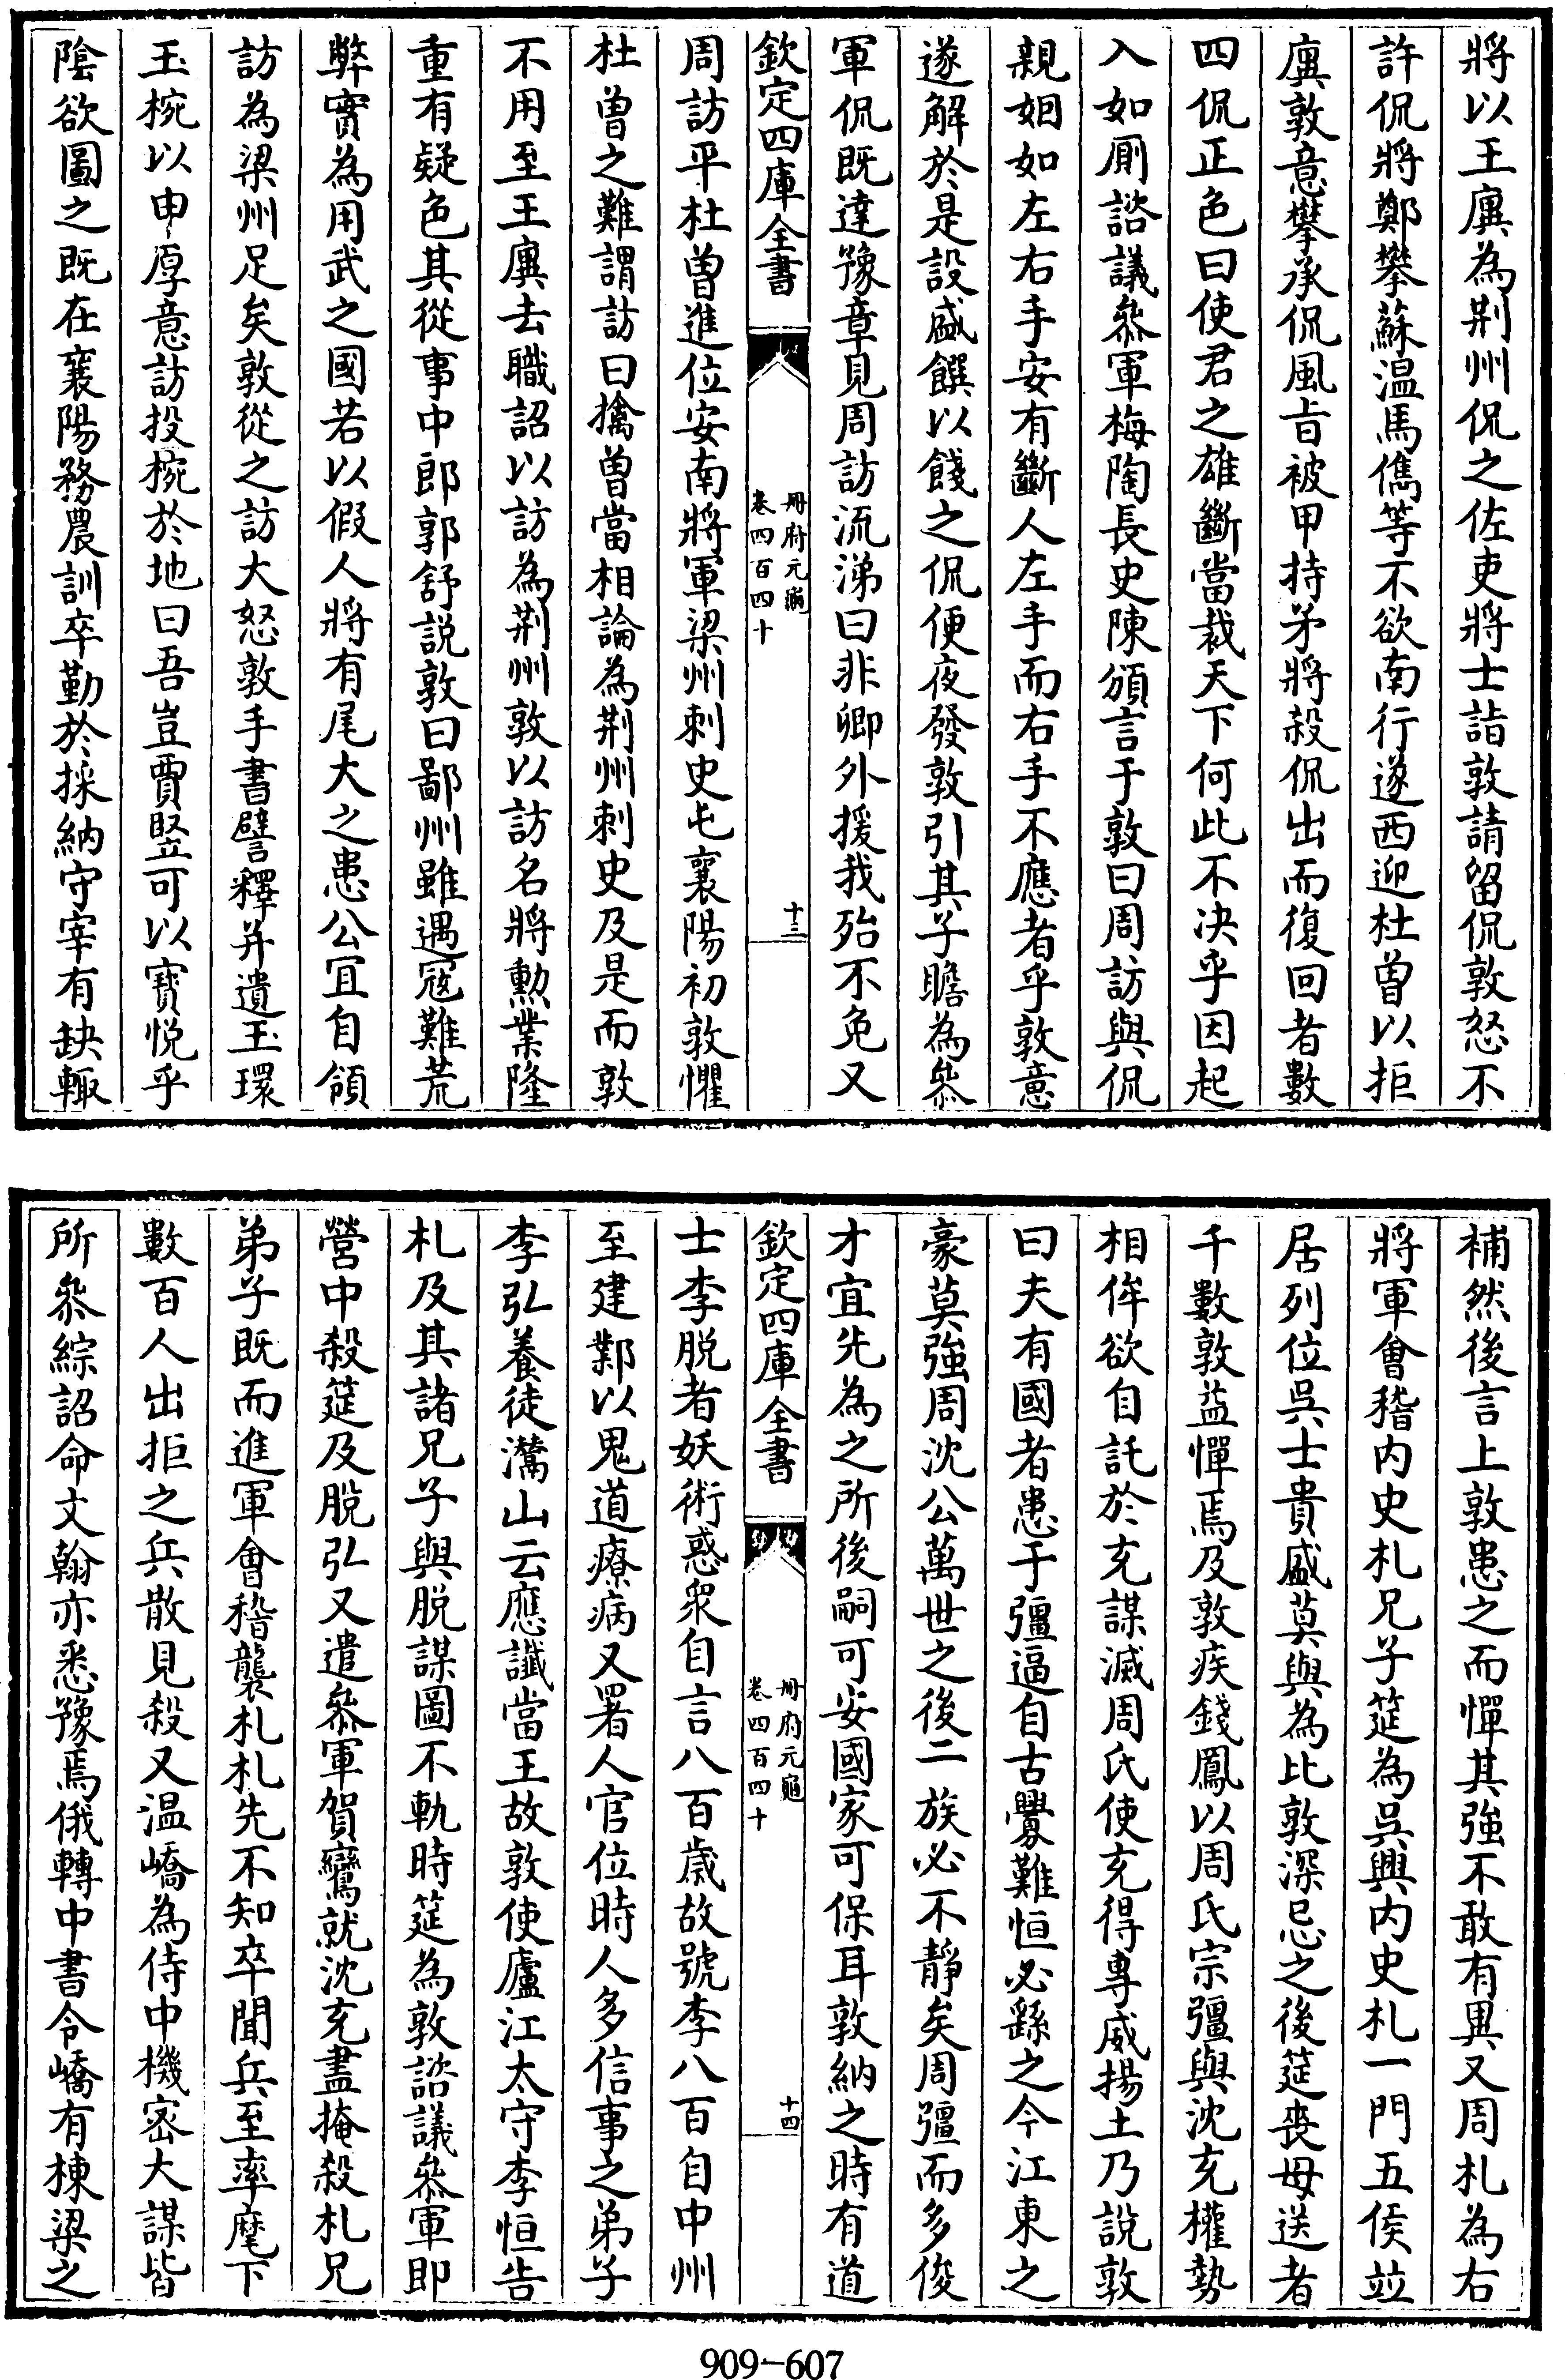 將以王廙為荆州侃之佐吏將士詣敦請留侃敦怒不
許侃將鄭攀蘇溫馬儁等不欲南行遂西迎杜曾以拒
廙敦意攀承侃風㫖被甲持矛將殺侃出而復回者數
四侃正色曰使君之雄斷當裁天下何此不決乎因起
入如厠諮議叅軍梅陶長史陳頒言于敦曰周訪與侃
親姻如左右手安有斷人左手而右手不應者乎敦意
遂解於是設盛饌以餞之侃便夜發敦引其子瞻為叅
軍侃既達豫章見周訪流涕曰非卿外援我殆不免又
欽定四庫全書
冊府元龜
卷四百四十
十三
周訪平杜曾進位安南將軍梁州刺史屯襄陽初敦懼
杜曾之難謂訪曰擒曾當相論為荆州刺史及是而敦
不用至王廙去職詔以訪為荆州敦以訪名將勲業隆
重有疑色其從事中郎郭舒説敦曰鄙州雖遇冦難荒
弊實為用武之國若以假人將有尾大之患公宜自領
訪為梁州足矣敦從之訪大怒敦手書譬釋并遺玉環
玉椀以申厚意訪投椀於地曰吾豈賈竪可以寳悅乎
陰欲圖之既在襄陽務農訓卒勤於採納守宰有缺輙
補然後言上敦患之而憚其強不敢有異又周札為右
將軍會稽内史札兄子筵為吳興内史札一門五侯竝
居列位吳士貴盛莫與為比敦深忌之後筵喪母送者
千數敦益憚焉及敦疾錢鳳以周氏宗彊與沈充權勢
相侔欲自託於充謀滅周氏使充得專威揚土乃說敦
曰夫有國者患于彊逼自古釁難恒必繇之今江東之
豪莫強周沈公萬世之後二族必不靜矣周彊而多俊
才宜先為之所後嗣可安國家可保耳敦納之時有道
欽定四庫全書
冊府元龜
卷四百四十
十四
士李脱者妖術惑衆自言八百歳故號李八百自中州
至建鄴以鬼道療病又署人官位時人多信事之弟子
李弘養徒灊山云應讖當王故敦使廬江太守李恒告
札及其諸兄子與脱謀圖不軌時筵為敦諮議叅軍即
營中殺筵及脱弘又遣叅軍賀鸞就沈充盡掩殺札兄
弟子既而進軍會稽襲札札先不知卒聞兵至率麾下
數百人出拒之兵散見殺又溫嶠為侍中機密大謀皆
所叅綜詔命文翰亦悉豫焉俄轉中書令嶠有棟梁之
909-607